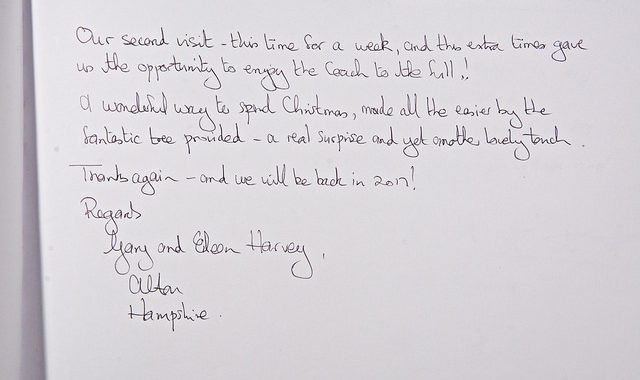 Our second visit - this time for a week, and this extra time gave
us the opportunity to enjoy the Coach to the full!!
A wonderful way to spend Christmas, made all the easier by the
fantastic tree provided - a real surprise and yet another lovely touch.
Thanks again - and we will be back in 2017!
Regards
Gary and Eileen Harvey,
Alton
Hampshire.